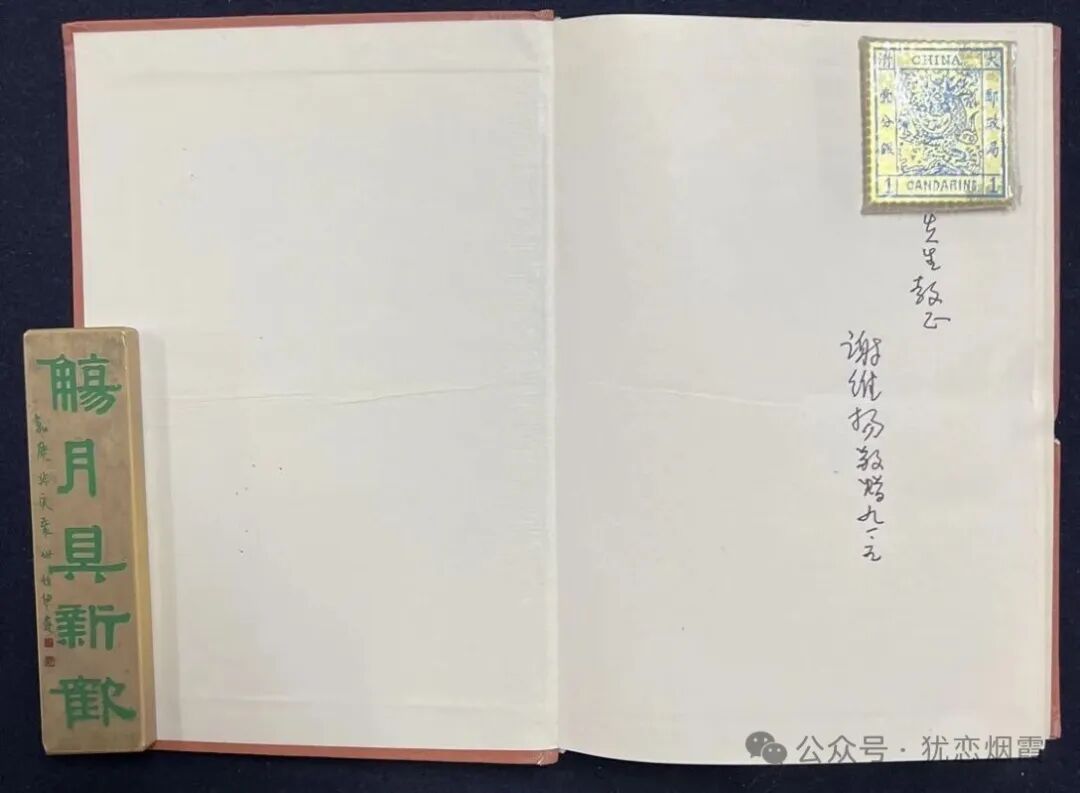 CHINA
大郵政局
清壹分銀
1 CANDARIN 1
先生教正
谢维扬敬赠
觴月具新歡
公众号·犹恋烟霞